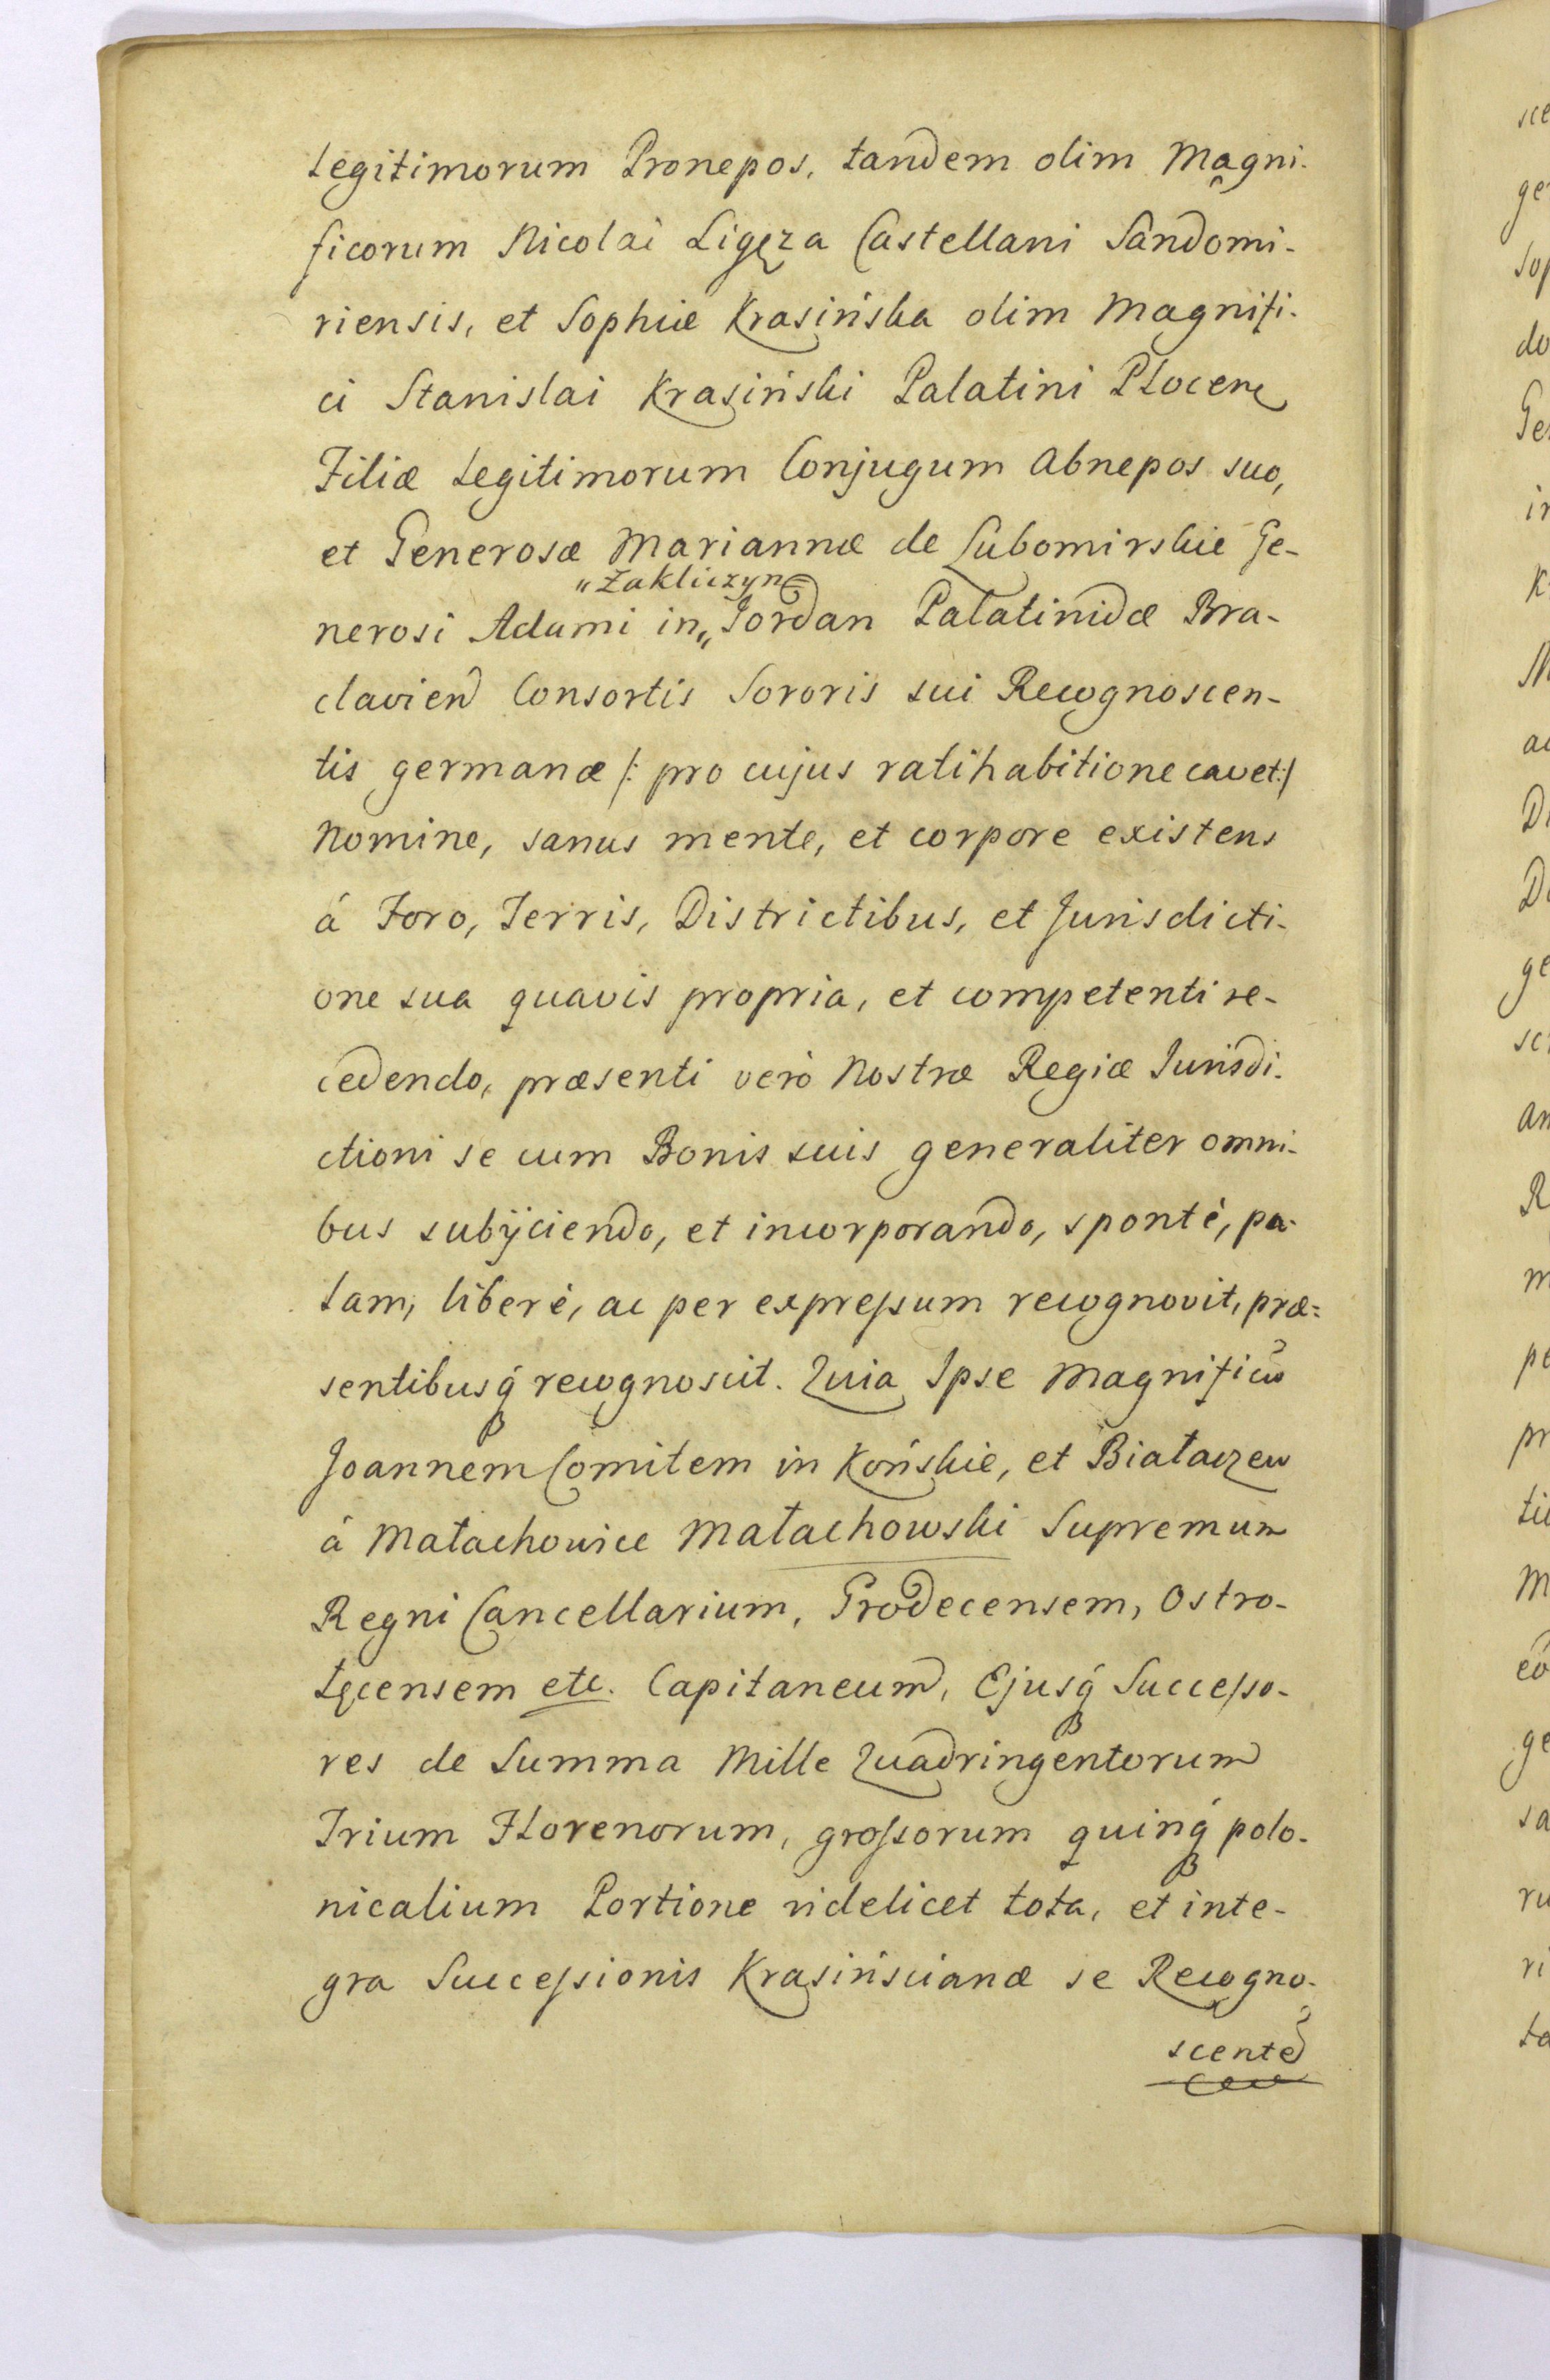 Legitimorum Pronepos, tandem olim Magni-
ficorum Nicolai Ligęza Castellani Sandomi-
riensis, et Sophiæ Krasińska olim Magnifi-
ci Stanislai Krasiński Palatini Płocen
Filiæ Legitimorum Conjugum Abnepos suo,
et Generosæ Mariannæ de Lubomirskie Ge-
„Zakliczyn
nerosi Adami in„ Jordan Palatinidæ Bra-
clavien Consortis Sororis sui Recognoscen-
tis germanæ /: pro cujus ratihabitione cavet :/
Nomine, sanus mente, et corpore existens
á Foro, Terris, Districtibus, et Jurisdicti-
one sua quavis propria, et competenti re-
cedendo, præsenti verò Nostræ Regiæ Jurisdi-
ctioni se cum Bonis suis generaliter omni-
bus subijciendo, et incorporando, spontè, pa-
lam, liberè, ac per expressum recognovit, præ=
sentibusq́ recognoscit. Quia Ipse Magnificū
Joannem Comitem in Końskie, et Białaczew
á Małachowice Małachowski Supremum
Regni Cancellarium, Grodecensem, Ostro-
łęcensem etc. Capitaneum, Ejusq́ Successo-
res de Summa Mille Quadringentorum
Trium Florenorum, grossorum quinq́ polo-
nicalium Portione videlicet tota, et inte-
gra Successionis Krasińscianæ se Recogno-
scente